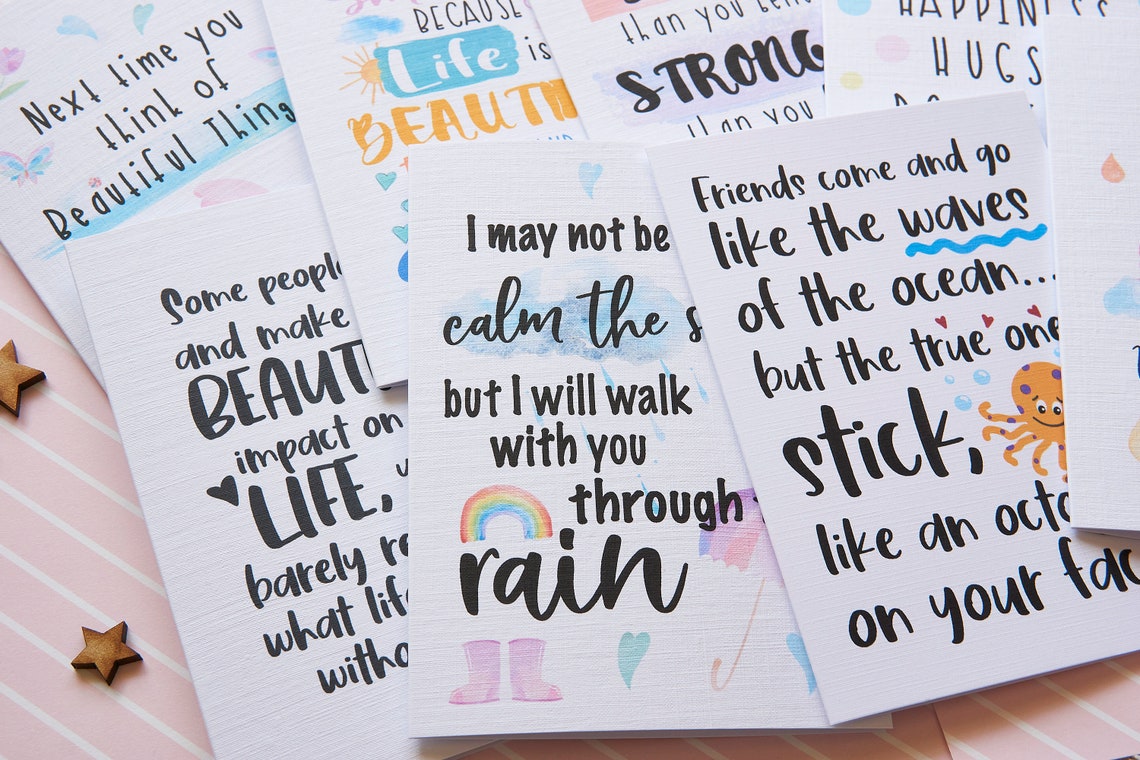 Next time you
think of
Beautiful Thing
BECAUSE
Life is
than you
STRONG
than you
HUGS
Some
and make
impact on
LIFE,
barely
what
I may not be
calm the
but I will walk
with you
through
rain
Friends come and go
like the waves
of the ocean...
but the true
stick,
like an
on your